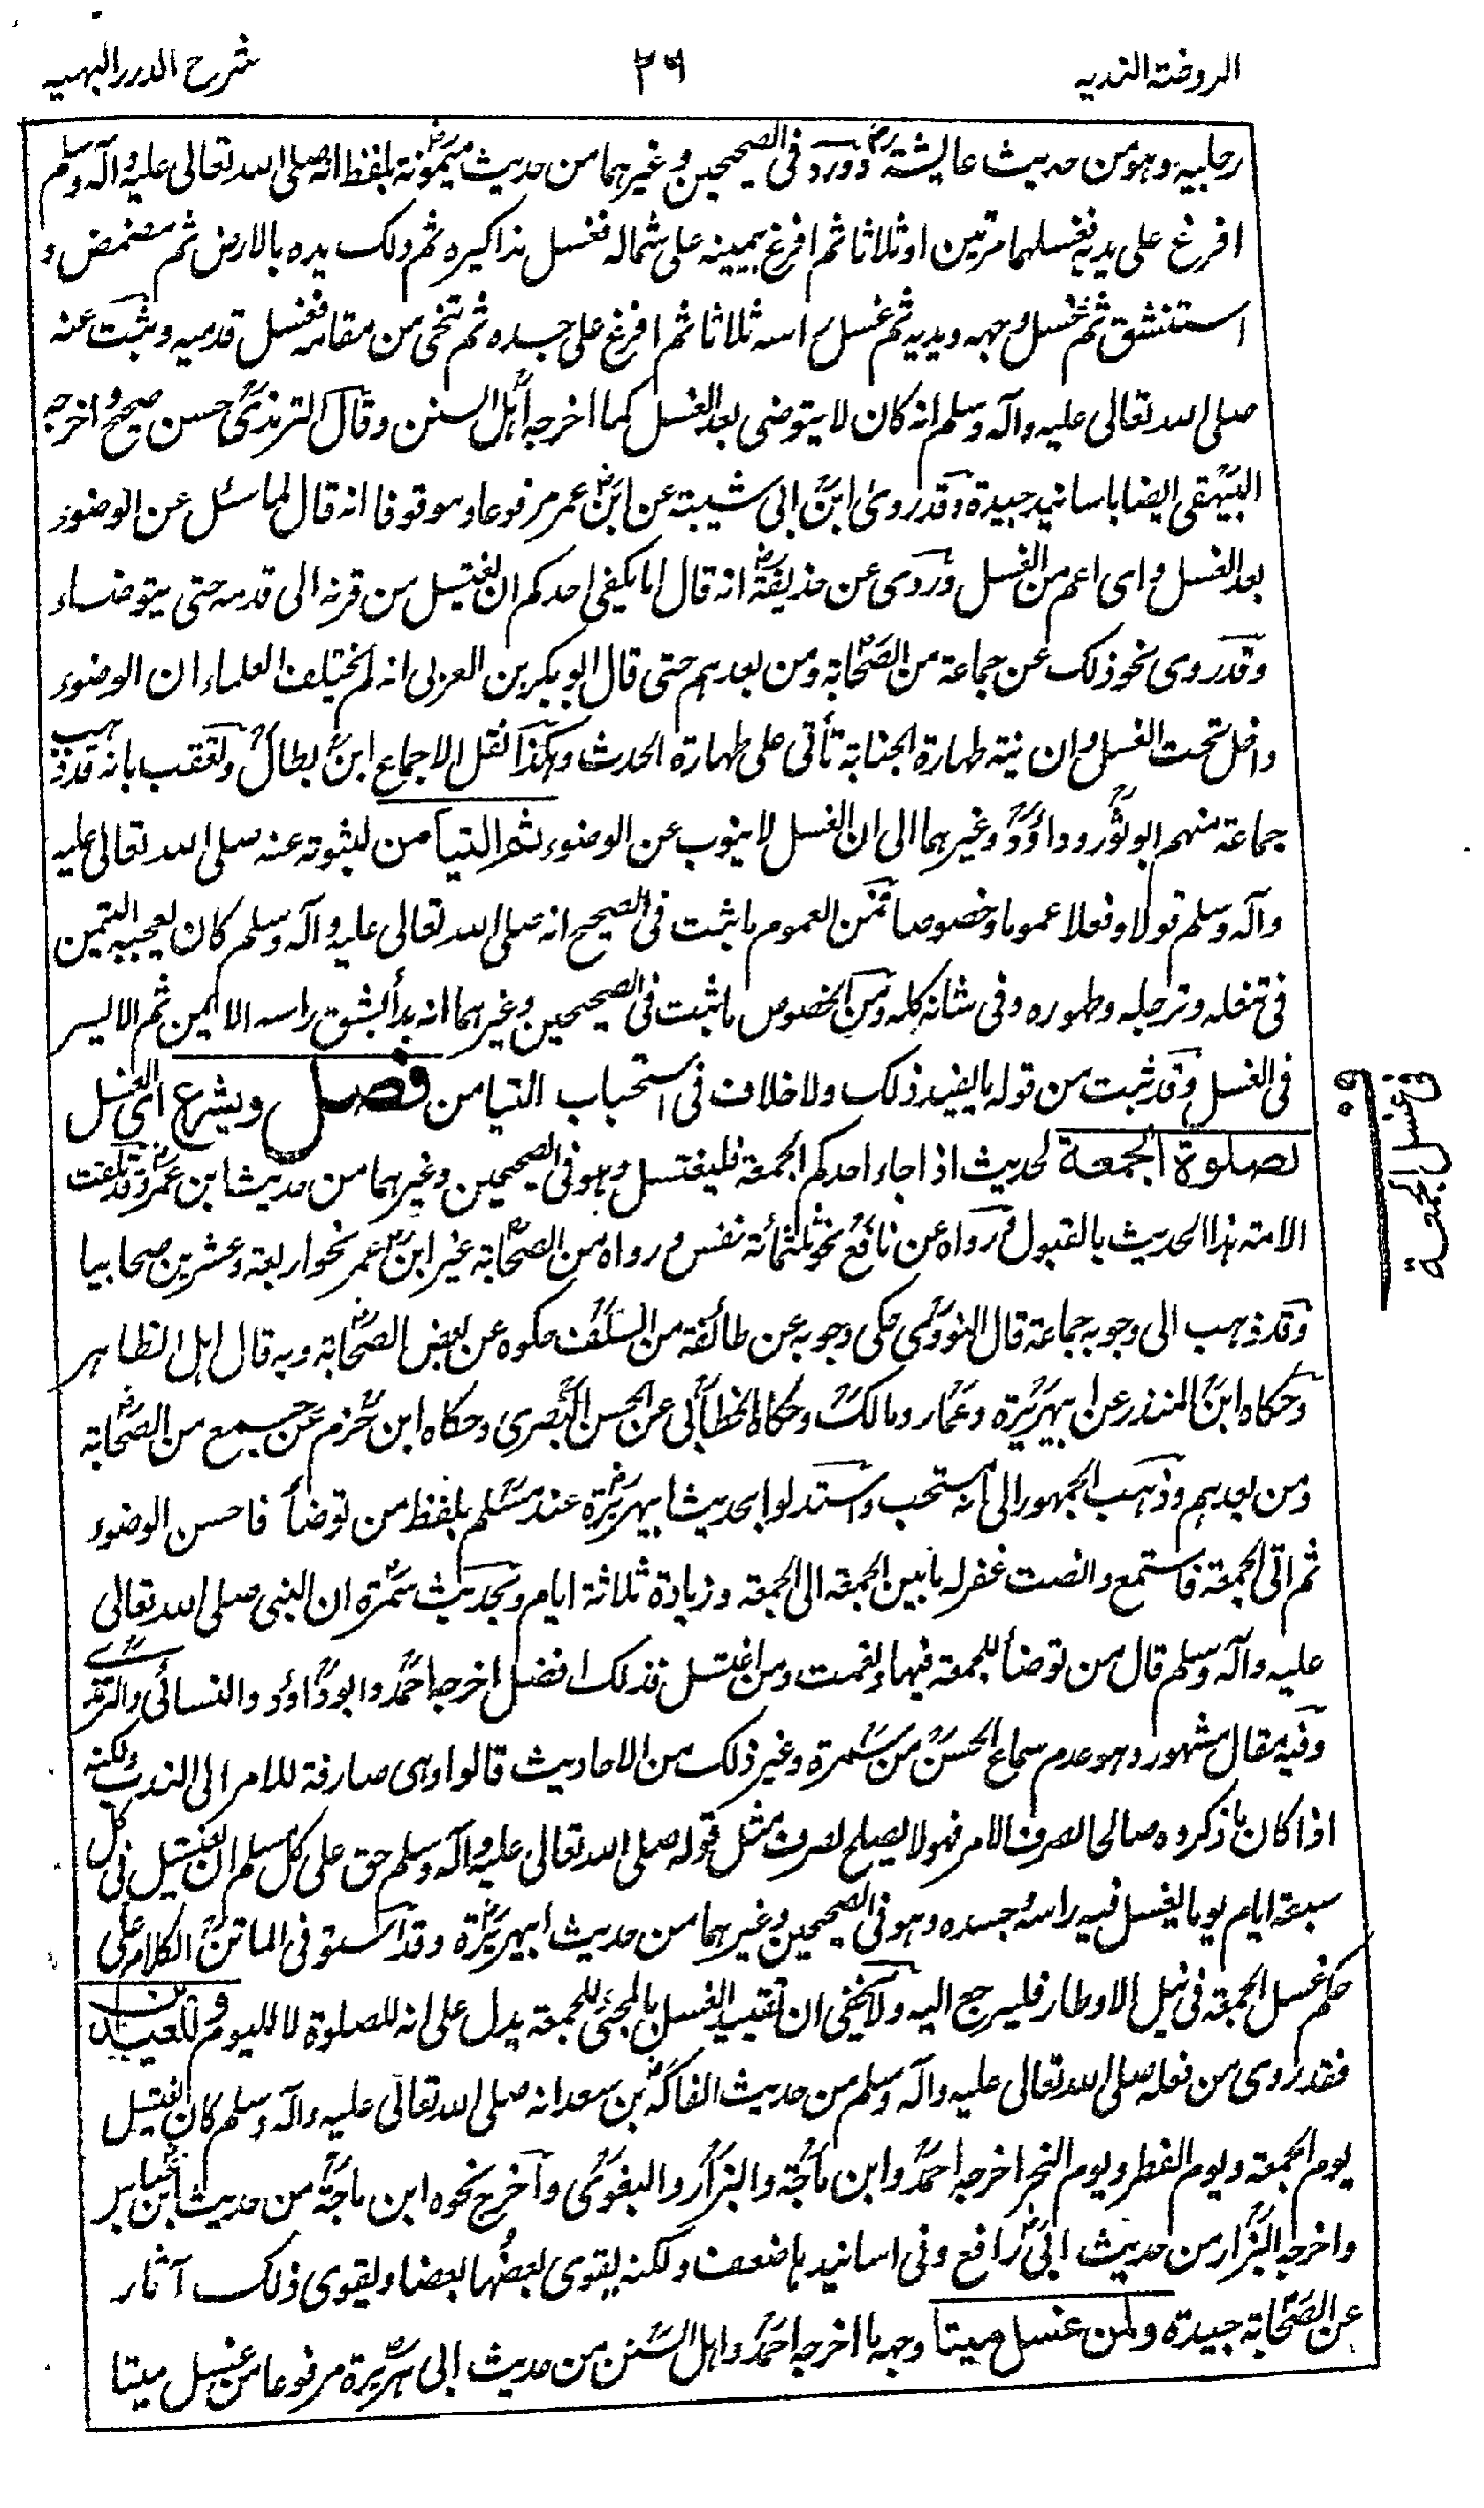 الروضة الندیه
۳۶
شرح الدرر البهیه
رجلیه وهو من حدیث عایشة رض وورد فی الصحیحین وغیرهما من حدیث میمونة بلفظ انه صلی الله تعالی علیه وآله وسلم
افرغ علی یدیه فغسلهما مرتین او ثلاثا ثم افرغ بیمینه علی شماله فغسل مذاکیره ثم دلک یده بالارض ثم مضمض و
استنشق ثم غسل وجهه ویدیه ثم غسل راسه ثلاثا ثم افرغ علی جسده ثم تنحی من مقامه فغسل قدمیه وثبت عنه
صلی الله تعالی علیه وآله وسلم انه کان لا یتوضی بعد الغسل کما اخرجه اهل السنن وقال الترمذی حسن صحیح واخرجه
البیهقی ایضا باسانید جیدة وقد روی ابن ابی شیبة عن ابن عمر مرفوعا وموقوفا انه قال لما سئل عن الوضوء
بعد الغسل وای اعم من الغسل وروی عن حذیفة انه قال اما یکفی احدکم ان یغتسل من قرنه الی قدمه حتی یتوضاء
وقد روی نحو ذلک عن جماعة من الصحابة ومن بعدهم حتی قال ابو بکر بن العربی انه لم یختلف العلماء ان الوضوء
داخل تحت الغسل وان نیة طهارة الجنابة تأتی علی طهارة الحدث وهکذا نقل الاجماع ابن بطال وتعقب بانه قد ذهب
جماعة منهم ابو ثور وداؤد وغیرهما الی ان الغسل لا ینوب عن الوضوء ثم التیامن لثبوته عنه صلی الله تعالی علیه
وآله وسلم قولا وفعلا عموما وخصوصا فمن العموم ما ثبت فی الصحیح انه صلی الله تعالی علیه وآله وسلم کان یعجبه التیمن
فی تنعله وترجله وطهوره وفی شانه کله ومن الخصوص ما ثبت فی الصحیحین وغیرهما انه بدأ بشق راسه الایمن ثم الایسر
فی الغسل وقد ثبت من قوله ما یفید ذلک ولا خلاف فی استحباب التیامن فصل ویشرع ای الغسل
لصلوة الجمعة لحدیث اذا جاء احدکم الجمعة فلیغتسل وهو فی الصحیحین وغیرهما من حدیث ابن عمر وقد تلقت
الامة هذا الحدیث بالقبول ورواه عن نافع نحو ثلثمائة نفس ورواه من الصحابة غیر ابن عمر نحو اربعة وعشرین صحابیا
وقد ذهب الی وجوبه جماعة قال النووی حکی وجوبه عن طائفة من السلف حکوه عن بعض الصحابة وبه قال اهل الظاهر
وحکاه ابن المنذر عن ابیهریرة وعمار ومالک وحکاه الخطابی عن الحسن البصری وحکاه ابن حزم عن جمیع من الصحابة
ومن بعدهم وذهب الجمهور الی انه مستحب واستدلوا بحدیث ابیهریرة عند مسلم بلفظ من توضأ فاحسن الوضوء
ثم اتی الجمعة فاستمع وانصت غفر له ما بین الجمعة الی الجمعة وزیادة ثلاثة ایام وبحدیث سمرة ان النبی صلی الله تعالی
علیه وآله وسلم قال من توضأ للجمعة فبها ونعمت ومن اغتسل فذلک افضل اخرجه احمد وابو داؤد والنسائی والترمذی
وفیه مقال مشهور وهو عدم سماع الحسن من سمرة وغیر ذلک من الاحادیث قالوا وهی صارفة للامر الی الندب ولکنه
اذا کان ما ذکروه صالحا لصرف الامر فهو لا یصلح لصرف مثل قوله صلی الله تعالی علیه وآله وسلم حق علی کل مسلم ان یغتسل فی کل
سبعة ایام یوما یغسل فیه راسه وجسده وهو فی الصحیحین وغیرهما من حدیث ابیهریرة وقد استوفی الماتن الکلام علی
حکم غسل الجمعة فی نیل الاوطار فلیرجع الیه ولا یخفی ان تقیید الغسل بالمجئ للجمعة یدل علی انه للصلوة لا للیوم وللعیدین
فقد روی من فعله صلی الله تعالی علیه وآله وسلم من حدیث الفاکه بن سعد انه صلی الله تعالی علیه وآله وسلم کان یغتسل
یوم الجمعة ویوم الفطر ویوم النحر اخرجه احمد وابن ماجة والبزار والبغوی واخرج نحوه ابن ماجة من حدیث ابن عباس
واخرجه البزار من حدیث ابی رافع وفی اسانیدها ضعف ولکنه یقوی بعضها بعضا ویقوی ذلک آثار
عن الصحابة جیدة ولمن غسل میتا وجهه ما اخرجه احمد واهل السنن من حدیث ابی هریرة مرفوعا من غسل میتا
غسل الجمعة